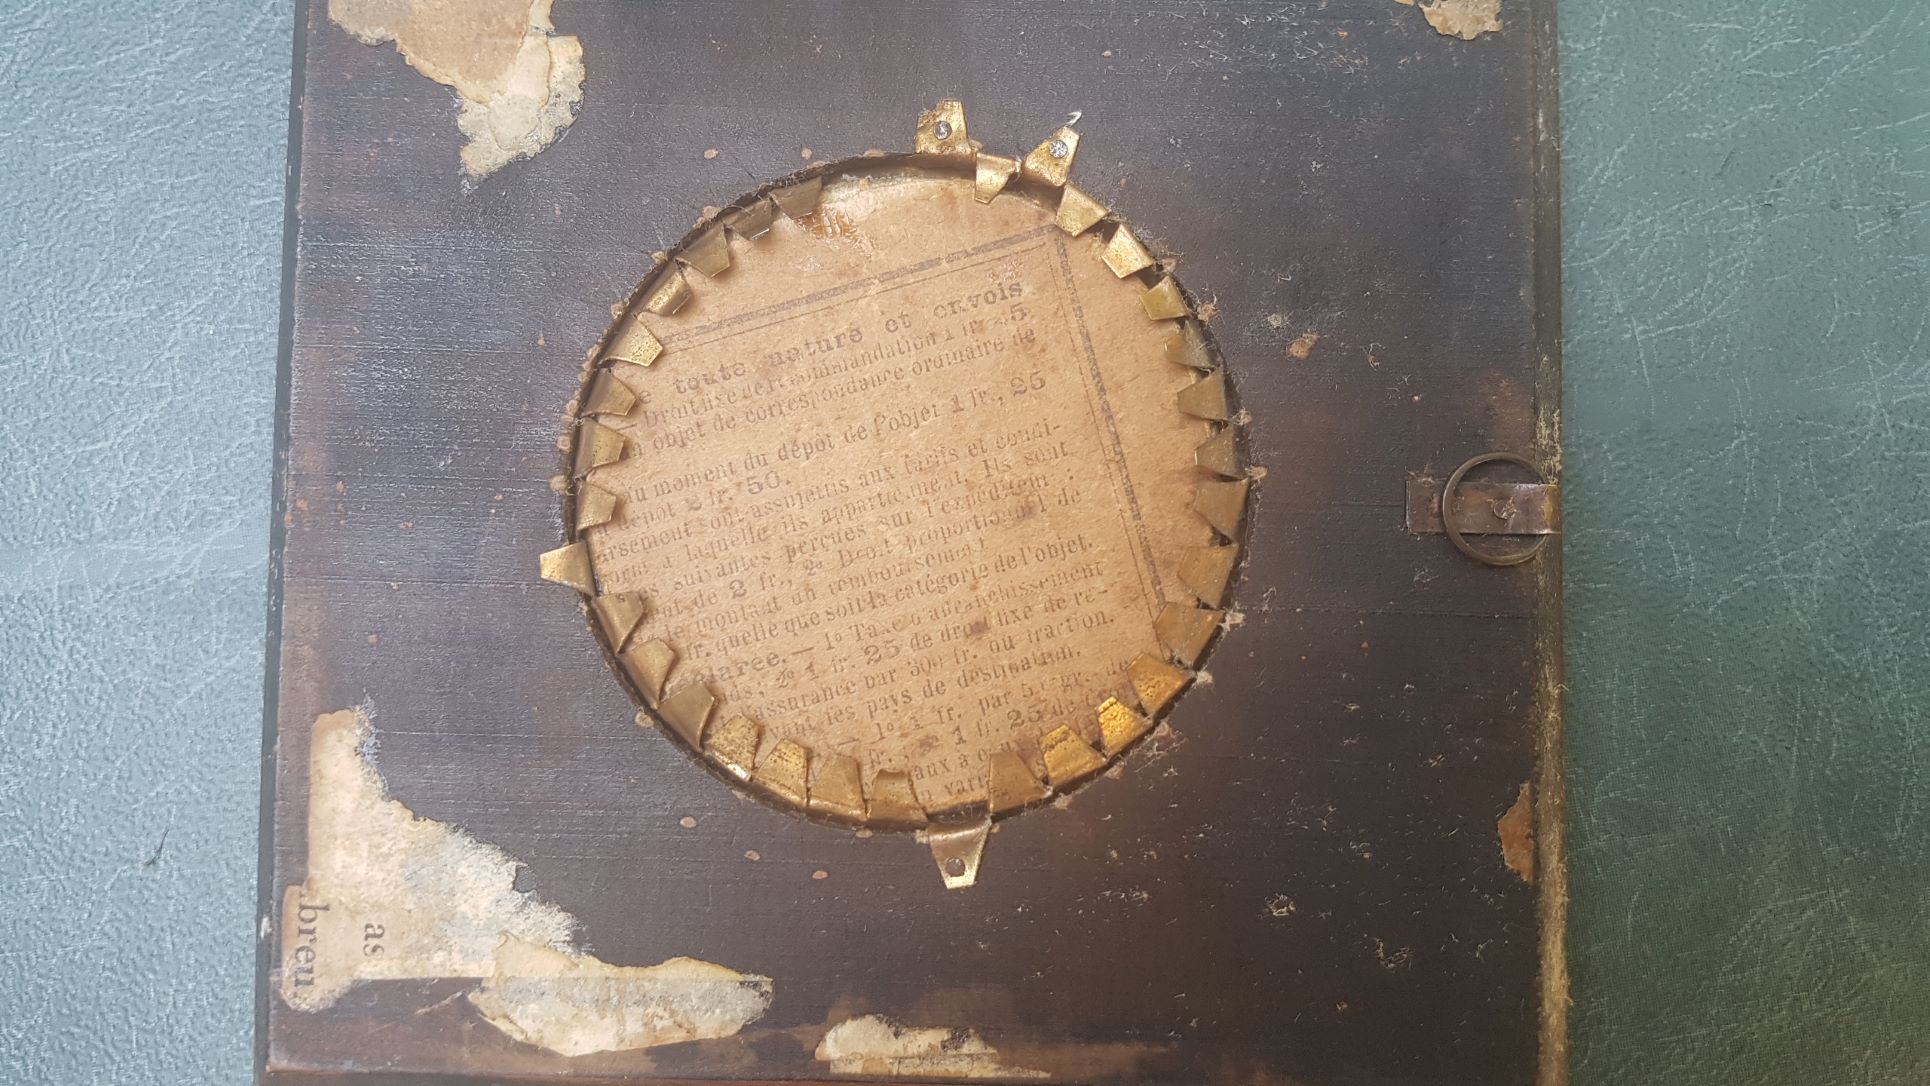 toute nature et envois
Droit fixe de recommandation 1 fr. 25
objet de correspondance ordinaire de
du moment du dépôt de l'objet 1 fr., 25
dépôt 2 fr. 50.
sont assujettis aux tarifs et condi-
à laquelle ils appartiennent. Ils sont
suivantes perçues sur l'expéditeur :
de 2 fr., 2° Droit proportionnel de
le montant du remboursement
fr. quelle que soit la catégorie de l'objet.
— 1° Taxe d'affranchissement
2° 1 fr. 25 de droit fixe de re-
assurance par 300 fr. ou fraction.
les pays de destination.
— 1° 1 fr. par 50 gr. de
fr., 2° 1 fr. 25 de
aux à
as
breu